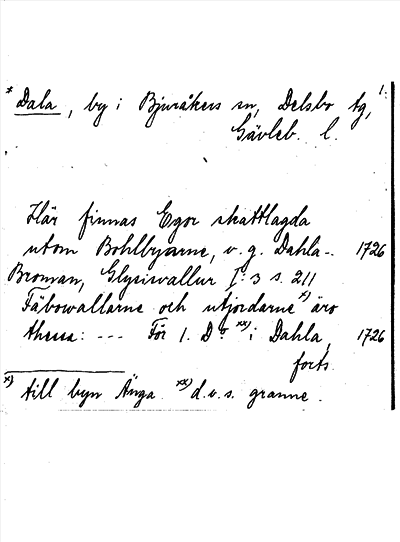 * Dala, by i Bjuråkers sn, Delsbo tg, 1.
Gävleb. l.
Här finnas Egor skattlagda
utom Bohlbyarne, v. g. Dahla-. 1726
Broman, Glysisvallur I:3 s. 211
Fäbowallarne och utjordarne x) äro
thessa: --- För 1. Dr xx) i Dahla, 1726
forts.
x) till byn Änga. xx) d.v.s. granne.